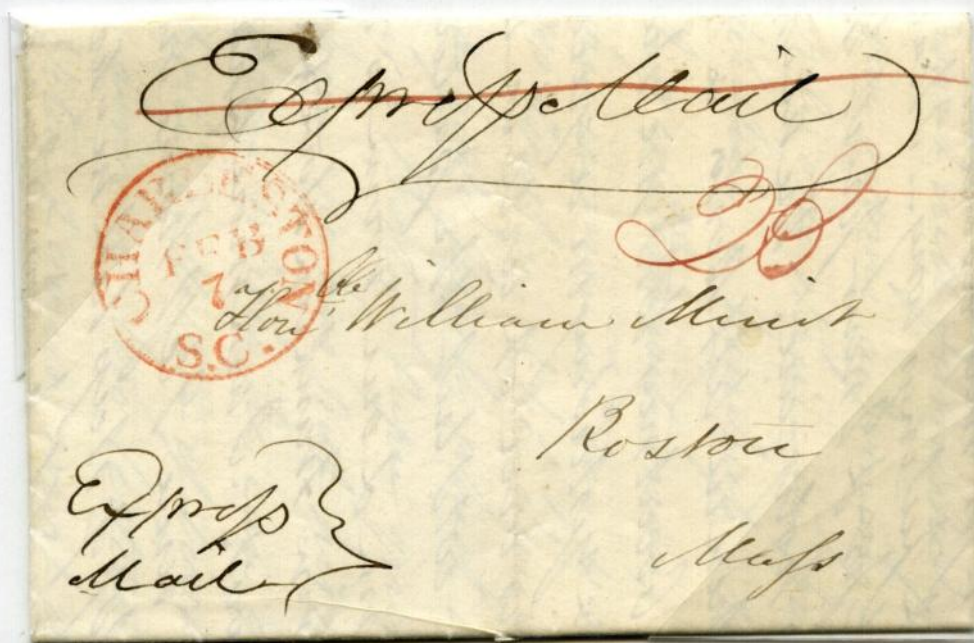 Express Mail
CHARLESTON
FEB
7
S.C.
Honble William Minot
Boston
Mass
Express
Mail